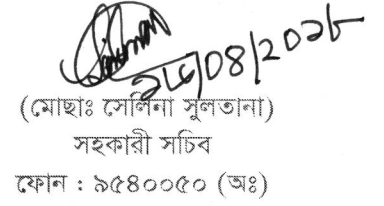 ২৬/০৪/২০১৮
(মোছাঃ সেলিনা সুলতানা)
সহকারী সচিব
ফোন : ৯৫৪০০৫০ (অঃ)